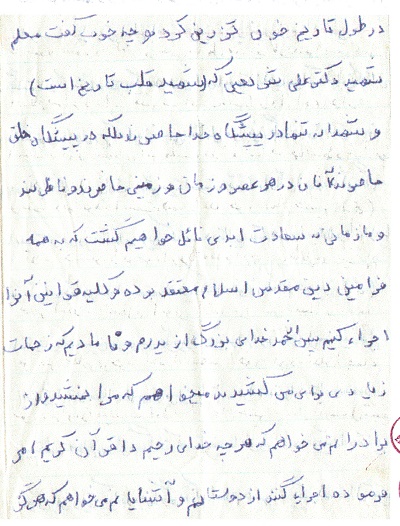 در طول تاریخ خون گزین کرد و چه خوب گفت معلم
شهید دکتر علی شریعتی که (شهید قلب تاریخ است)
و شهدا نه تنها در پیشگاه خدا حاضرند بلکه در پیشگاه خلق
حاضرند آنان در هر عصر و زمان و زمینی حاضرند و ناظرند
و ما زمانی به سعادت ابدی نائل خواهیم گشت که به همه
فرامین دین مقدس اسلام معتقد بوده و کلیه قوانین آنرا
اجراء کنیم خدای بزرگ از پدرم و مادرم که زحمات
زیادی برای من کشیدند میخواهم که مرا ببخشید و از
برادرانم می خواهم که هر چه خدای رحیم در قرآن کریم امر
فرموده اجراء کنند از دوستانم و آشنایانم می خواهم که هرگز